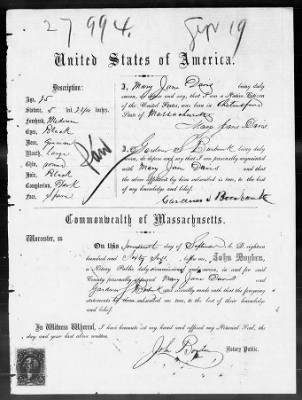 27 994.
Sept 19
United States of America.
Description:
Age, 25
Stature, 5 feet 2 1/2 inches.
Forehead, Medium
Eyes, Black
Nose,
Mouth, Large
Chin, round
Hair, Black
Complexion, Dark
Face,
I, Mary Jane Davis being duly
sworn, depose and say, that I am a Native Citizen
of the United States, was born in
State of Massachusetts
Mary Jane Davis
I, Gardner S Burbank being duly
sworn, do depose and say that I am personally acquainted
with Mary Jane Davis and that
the above affidavit by him subscribed is true, to the best of
my knowledge and belief.
Gardner S Burbank
Commonwealth of Massachusetts.
Worcester, ss
On this day of A. D. eighteen
hundred and Sixty before me, John Boyden,
a Notary Public duly commissioned and sworn, in and for said
County personally appeared Mary Jane Davis and
Gardner S and severally made oath that the foregoing
statements by them subscribed are true, to the best of their
knowledge and belief.
In Witness Whereof, I have hereunto set my hand and affixed my Notarial Seal, the
day and year last above written.
John Boyden
Notary Public.